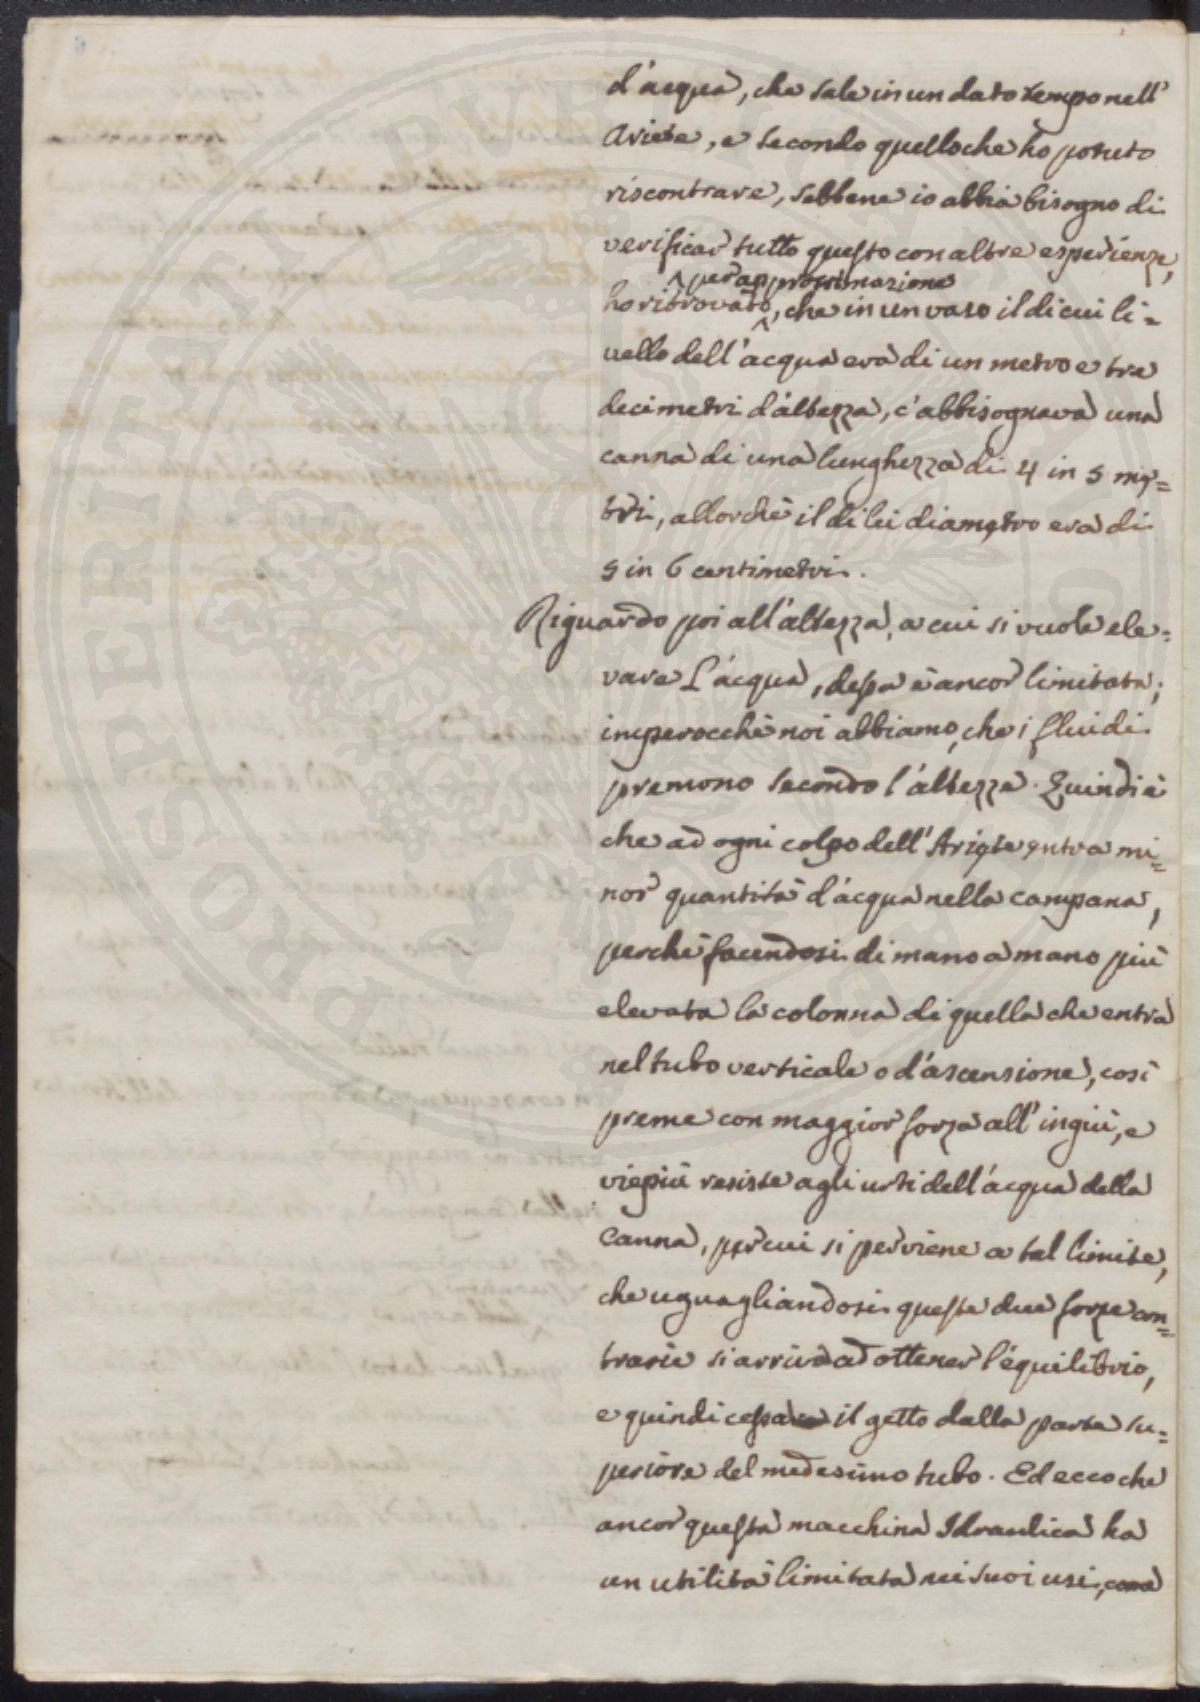 d'acqua, che sale in un dato tempo nell'
Ariete, e secondo quello che ho potuto
riscontrare, sebbene io abbia bisogno di
verificar tutto questo con altre esperienze,
^ per approssimazione
ho ritrovato, che in un vaso il di cui li=
vello dell'acqua era di un metro e tre
decimetri d'altezza, c'abbisognava una
canna di una lunghezza di 4 in 5 me=
tri, allorchè il di lei diametro era di
5 in 6 centimetri.
Riguardo poi all'altezza, a cui si vuole ele=
vare l'acqua, dessa è ancor limitata;
imperocchè noi abbiamo, che i fluidi
premono secondo l'altezza. Quindi è
che ad ogni colpo dell'Ariete entra mi=
nor quantità d'acqua nella campana,
perchè facendosi di mano a mano più
elevata la colonna di quella che entra
nel tubo verticale o d'ascensione, così
preme con maggior forza all'ingiù, e
viepiù resiste agli urti dell'acqua della
canna, per cui si perviene a tal limite,
che uguagliandosi queste due forze con=
trarie si arriva ad ottener l'equilibrio,
e quindi cessa il getto dalla parte su=
periore del medesimo tubo. Ed ecco che
ancor questa macchina Idraulica ha
un utilità limitata nei suoi usi, come
PROSPERITATI PVBLICAE